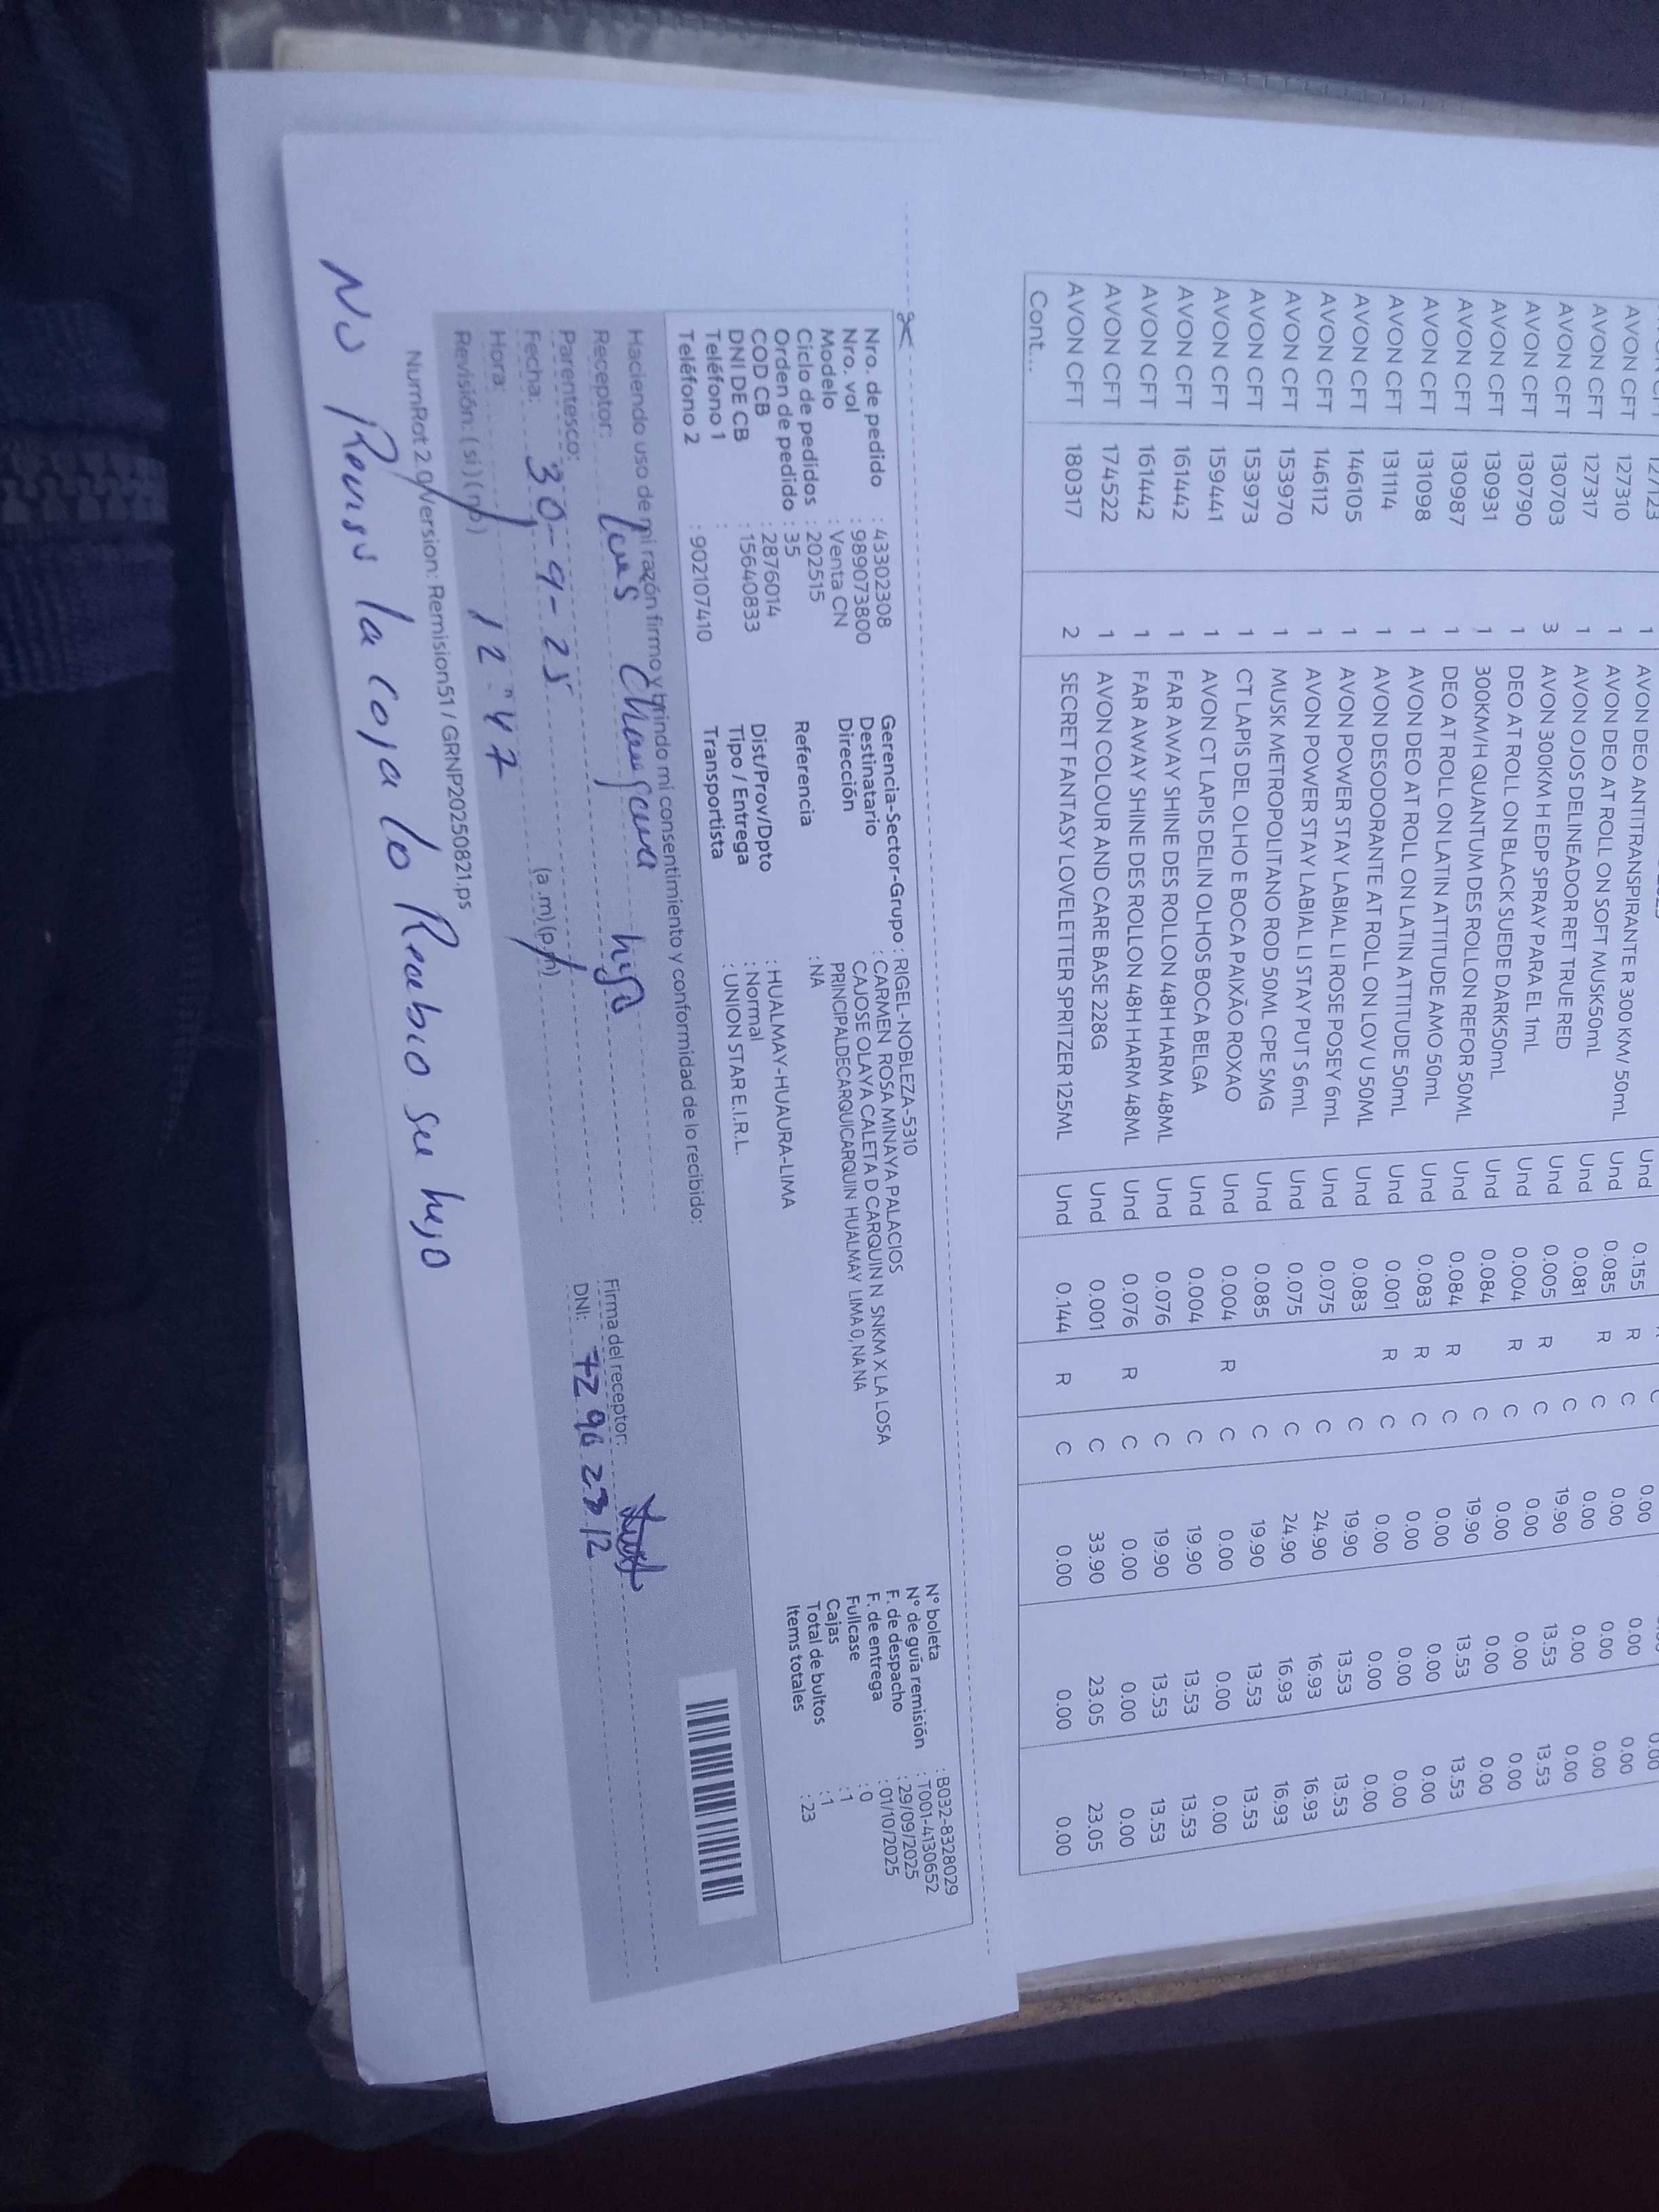 AVON CFT 127310 1 AVON DEO ANTITRANSPIRANTE R 300 KM/ 50mL Und 0.155 R C 0.00 0.00 0.00
AVON CFT 127317 1 AVON DEO AT ROLL ON SOFT MUSK50mL Und 0.085 R C 0.00 0.00 0.00
AVON CFT 130703 1 AVON OJOS DELINEADOR RET TRUE RED Und 0.081 C 0.00 0.00 0.00
AVON CFT 130790 3 AVON 300KM H EDP SPRAY PARA EL 1mL Und 0.005 R C 19.90 13.53 13.53
AVON CFT 130931 1 DEO AT ROLL ON BLACK SUEDE DARK50mL Und 0.004 R C 0.00 0.00 0.00
AVON CFT 130987 1 300KM/H QUANTUM DES ROLLON REFOR 50ML Und 0.084 C 0.00 0.00 0.00
AVON CFT 131098 1 DEO AT ROLL ON LATIN ATTITUDE AMO 50mL Und 0.084 R C 19.90 13.53 13.53
AVON CFT 131114 1 AVON DEO AT ROLL ON LATIN ATTITUDE 50mL Und 0.083 R C 0.00 0.00 0.00
AVON CFT 146105 1 AVON DESODORANTE AT ROLL ON LOV U 50ML Und 0.001 R C 0.00 0.00 0.00
AVON CFT 146112 1 AVON POWER STAY LABIAL LI ROSE POSEY 6mL Und 0.083 C 0.00 0.00 0.00
AVON CFT 153970 1 AVON POWER STAY LABIAL LI STAY PUT S 6mL Und 0.075 C 19.90 13.53 13.53
AVON CFT 153973 1 MUSK METROPOLITANO ROD 50ML CPE SMG Und 0.075 C 24.90 16.93 16.93
AVON CFT 159441 1 CT LAPIS DEL OLHO E BOCA PAIXÃO ROXAO Und 0.085 C 24.90 16.93 16.93
AVON CFT 161442 1 AVON CT LAPIS DELIN OLHOS BOCA BELGA Und 0.004 R C 19.90 13.53 13.53
AVON CFT 161442 1 FAR AWAY SHINE DES ROLLON 48H HARM 48ML Und 0.004 C 0.00 0.00 0.00
AVON CFT 174522 1 FAR AWAY SHINE DES ROLLON 48H HARM 48ML Und 0.076 C 19.90 13.53 13.53
AVON CFT 180317 1 AVON COLOUR AND CARE BASE 228G Und 0.076 R C 19.90 13.53 13.53
2 SECRET FANTASY LOVELETTER SPRITZER 125ML Und 0.001 C 0.00 0.00 0.00
Und 0.144 R C 33.90 23.05 23.05
0.00 0.00 0.00
Cont...
Nro. de pedido : 43302308 Gerencia-Sector-Grupo : RIGEL-NOBLEZA-5310 N° boleta : B032-8328029
Nro. vol : 989073800 Destinatario : CARMEN ROSA MINAYA PALACIOS N° de guía remisión : T001-4130652
Modelo : Venta CN Dirección CAJOSE OLAYA CALETA D CARQUIN N SNKM X LA LOSA F. de despacho : 29/09/2025
PRINCIPALDECARQUICARQUIN HUALMAY LIMA 0, NA NA F. de entrega : 01/10/2025
Ciclo de pedidos : 202515 Referencia : NA Fullcase : 0
Orden de pedido : 35 Cajas : 1
COD CB : 2876014 Dist/Prov/Dpto : HUALMAY-HUAURA-LIMA Total de bultos : 1
DNI DE CB : 15640833 Tipo / Entrega : Normal Items totales : 23
Teléfono 1 : Transportista : UNION STAR E.I.R.L.
Teléfono 2 : 902107410
Haciendo uso de mi razón firmo y brindo mi consentimiento y conformidad de lo recibido:
Receptor: hijo Firma del receptor:
Parentesco: DNI: 72962312
Fecha: 30-9-25
Hora: 12"47 (a.m)(p.m)
Revisión: (si)(no)
NumRot 2.0/Version: Remision51 / GRNP20250821.ps
No Reviso la caja lo Recibio su hijo